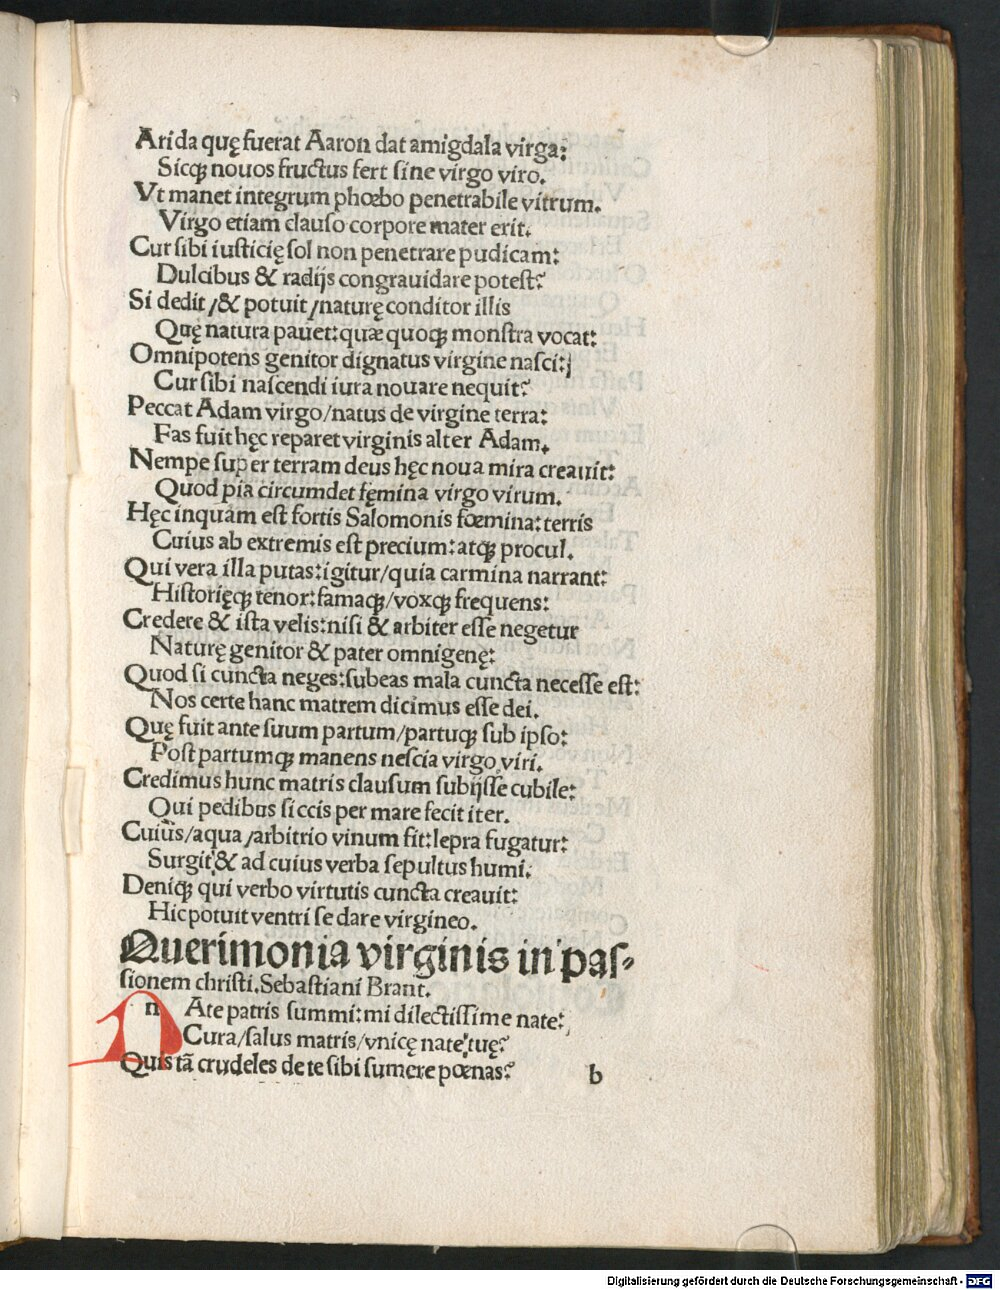 Arida quę fuerat Aaron dat amigdala virga:
Sicqꝫ nouos fructus fert sine virgo viro.
Vt manet integrum phœbo penetrabile vitrum.
Virgo etiam clauso corpore mater erit.
Cur sibi iusticię sol non penetrare pudicam:
Dulcibus & radijs congrauidare potest?
Si dedit/& potuit/naturę conditor illis
Quę natura pauet:quæ quoqꝫ monstra vocat:
Omnipotens genitor dignatus virgine nasci:
Cur sibi nascendi iura nouare nequit?
Peccat Adam virgo/natus de virgine terra:
Fas fuit hęc reparet virginis alter Adam.
Nempe super terram deus hęc noua mira creauit:
Quod pia circumdet fęmina virgo virum.
Hęc inquam est fortis Salomonis fœmina:terris
Cuius ab extremis est precium:atqꝫ procul.
Qui vera illa putas:igitur/quia carmina narrant:
Historięqꝫ tenor:famaqꝫ/voxqꝫ frequens:
Credere & ista velis:nisi & arbiter esse negetur
Naturę genitor & pater omnigenę:
Quod si cuncta neges:subeas mala cuncta necesse est:
Nos certe hanc matrem dicimus esse dei.
Quę fuit ante suum partum/partuqꝫ sub ipso:
Post partumqꝫ manens nescia virgo viri.
Credimus hunc matris clausum subijsse cubile:
Qui pedibus siccis per mare fecit iter.
Cuius/aqua/arbitrio vinum fit:lepra fugatur:
Surgit:& ad cuius verba sepultus humi.
Deniqꝫ qui verbo virtutis cuncta creauit:
Hic potuit ventri se dare virgineo.
Querimonia virginis in pas-
sionem christi.Sebastiani Brant.
n Ate patris summi:mi dilectissime nate:
Cura/salus matris/vnicę nate tuę?
Quis tã crudeles de te sibi sumere pœnas? b
Digitalisierung gefördert durch die Deutsche Forschungsgemeinschaft - DFG